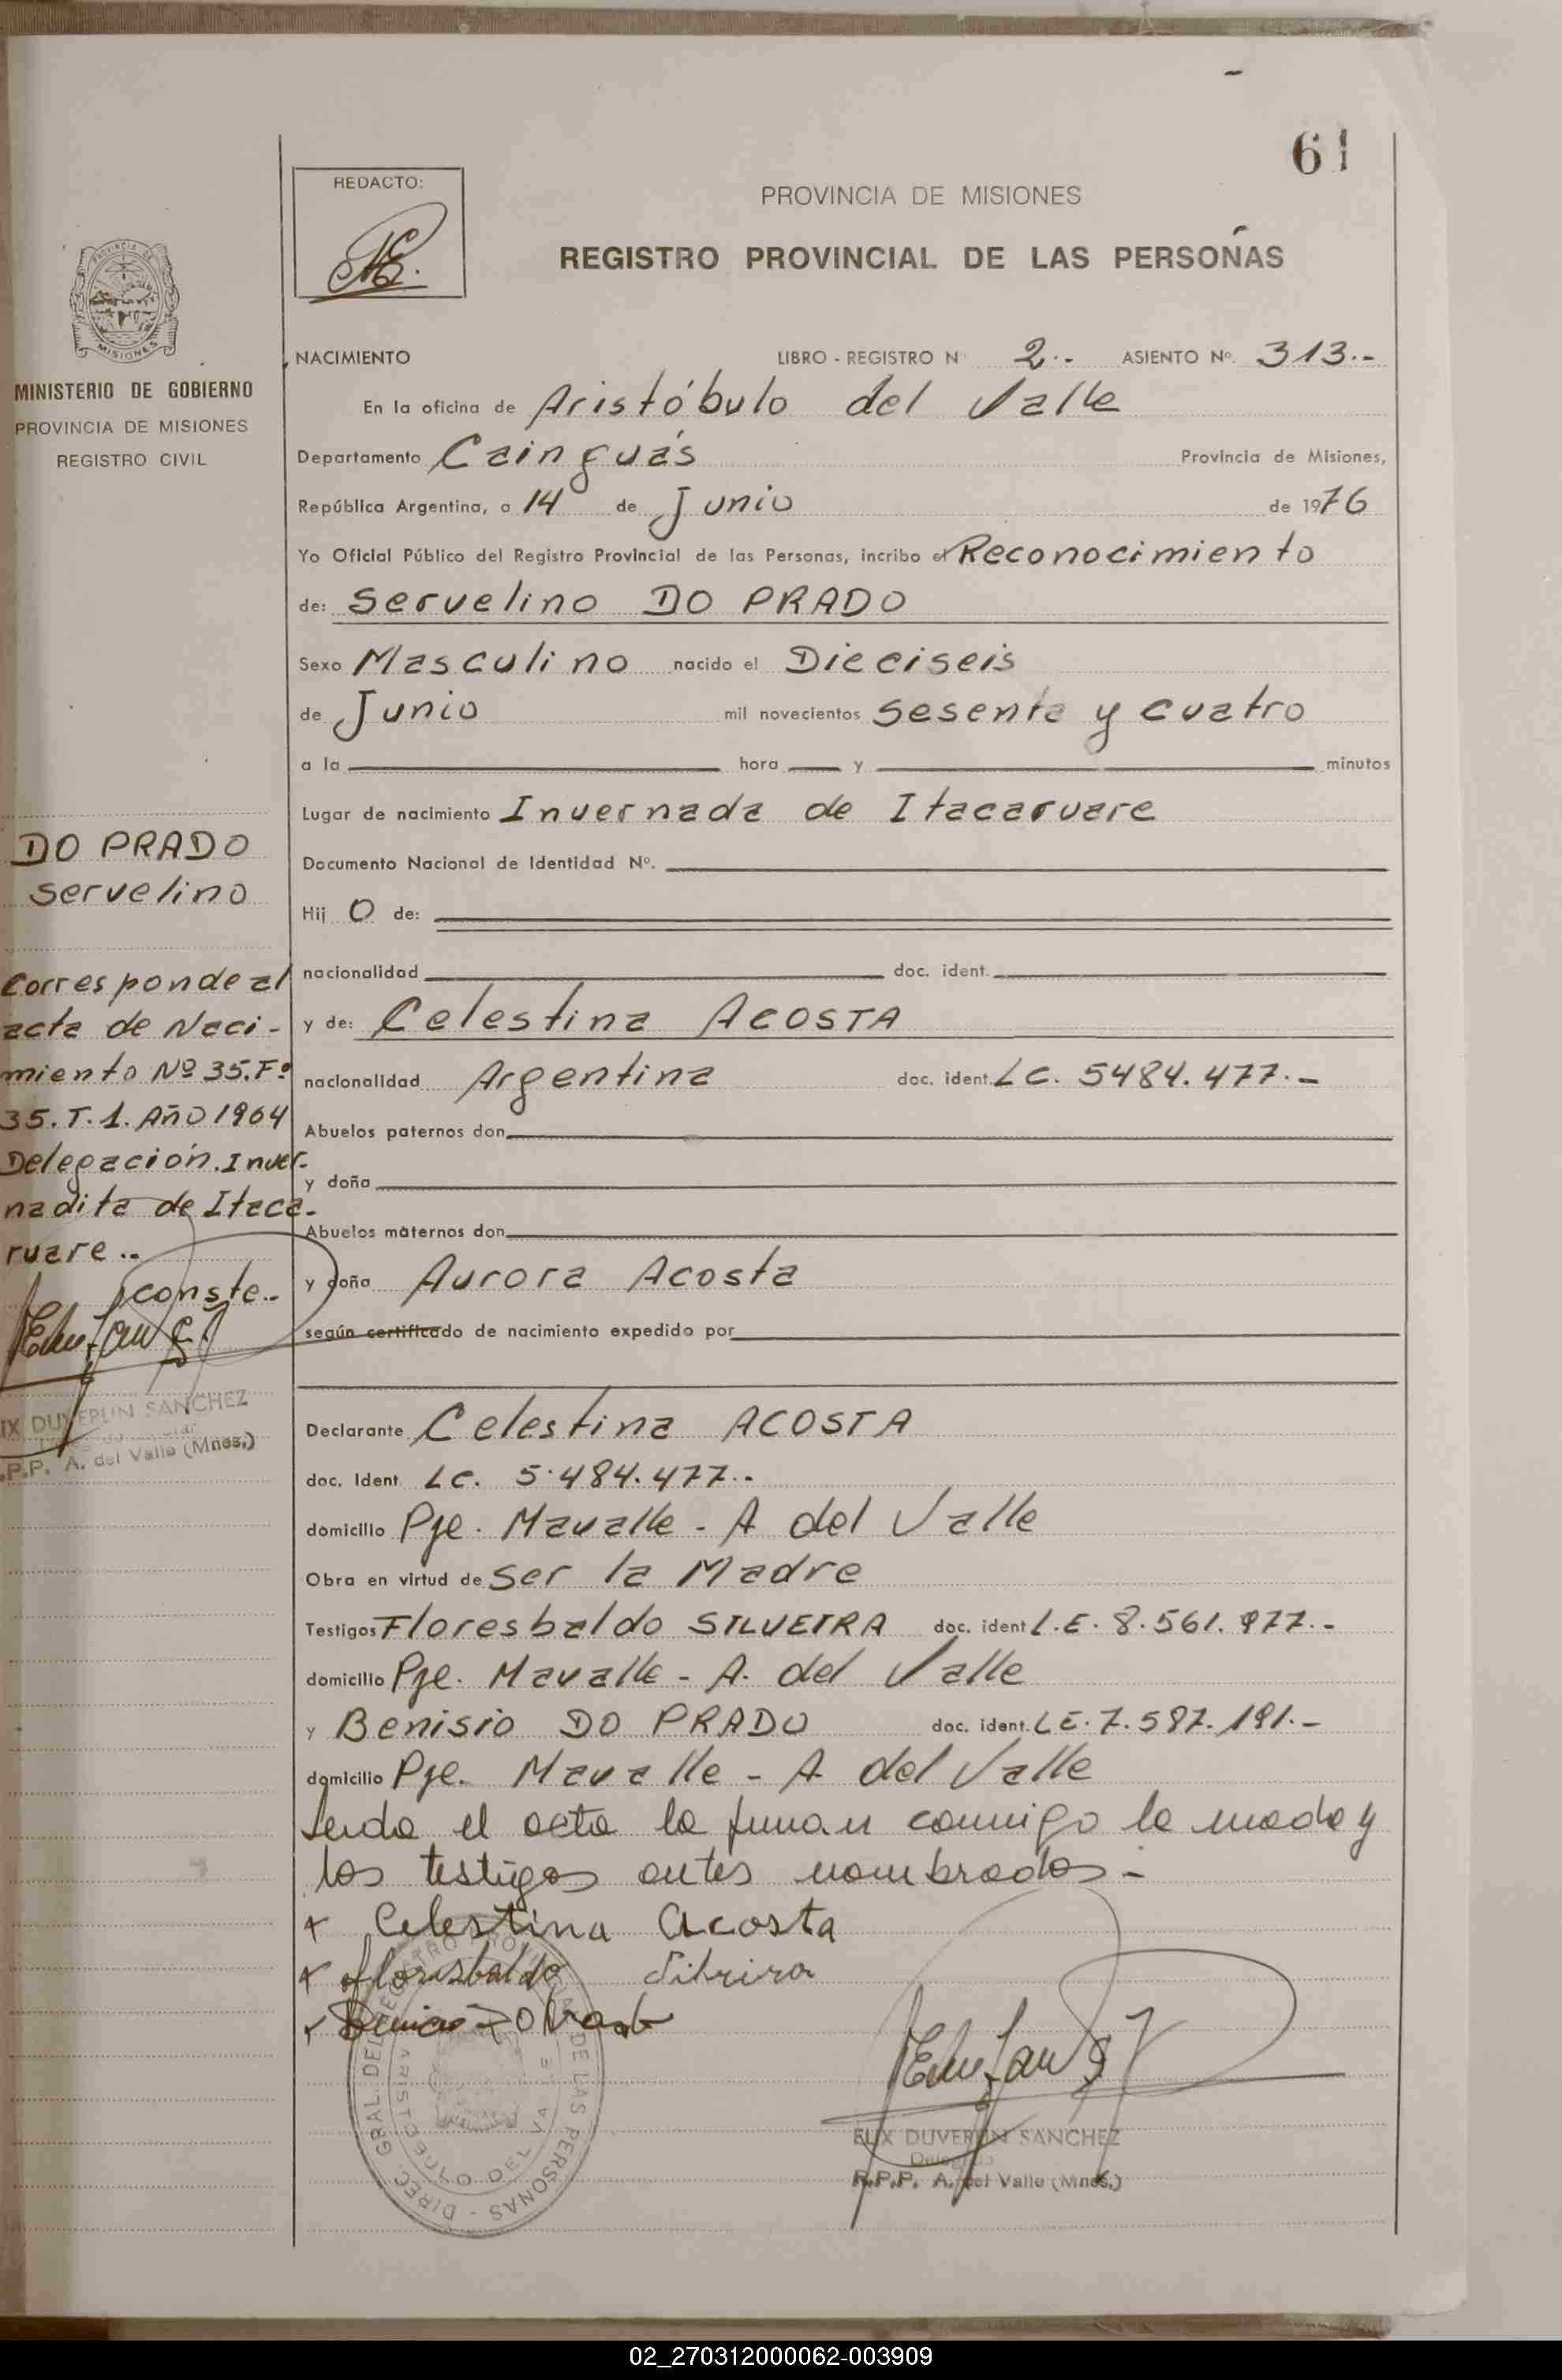 61
REDACTO:
PROVINCIA DE MISIONES
REGISTRO PROVINCIAL DE LAS PERSONAS
NACIMIENTO LIBRO - REGISTRO Nº 2.- ASIENTO Nº. 313.-
En la oficina de Aristóbulo del Valle
Departamento Cainguás Provincia de Misiones,
República Argentina, a 14 de Junio de 1976
Yo Oficial Público del Registro Provincial de las Personas, incribo el Reconocimiento
de: Servelino DO PRADO
Sexo Masculino nacido el Dieciseis
de Junio mil novecientos Sesenta y cuatro
a la hora y minutos
Lugar de nacimiento Invernada de Itacaruare
Documento Nacional de Identidad Nº.
Hij O de:
nacionalidad doc. ident.
y de: Celestina ACOSTA
nacionalidad Argentina doc. ident. LC. 5484.477.-
Abuelos paternos don
y doña
Abuelos maternos don
y doña Aurora Acosta
según certificado de nacimiento expedido por
Declarante Celestina ACOSTA
doc. Ident LC. 5.484.477.-
domicilio Pje. Mavalle - A del Valle
Obra en virtud de Ser la Madre
Testigos Floresbaldo SILVEIRA doc. ident L.E. 8.561.977.-
domicilio Pje. Mavalle - A. del Valle
y Benisio DO PRADO doc. ident. LE. 7.587.191.-
domicilio Pje. Mavalle - A del Valle
Leida el acta la firman conmigo la madre y
los testigos antes nombrados.-
x Celestina Acosta
x Florisbaldo Silvira
x
DIREC. GRAL. DEL REGISTRO PROVINCIAL DE LAS PERSONAS -
ARISTOBULO DEL VALLE
ELIX DUVERLIN SANCHEZ
Delegado
R.P.P. A. del Valle (Mnes.)
PROVINCIA DE
MISIONES
MINISTERIO DE GOBIERNO
PROVINCIA DE MISIONES
REGISTRO CIVIL
DO PRADO
Servelino
Corresponde al
acta de Naci-
miento Nº 35. Fº
35. T. 1. Año 1964
Delegación. Inver-
nadita de Itaca-
ruare..
conste..
IX DUVERLIN SANCHEZ
.P.P. A. del Valle (Mnes.)
02_270312000062-003909